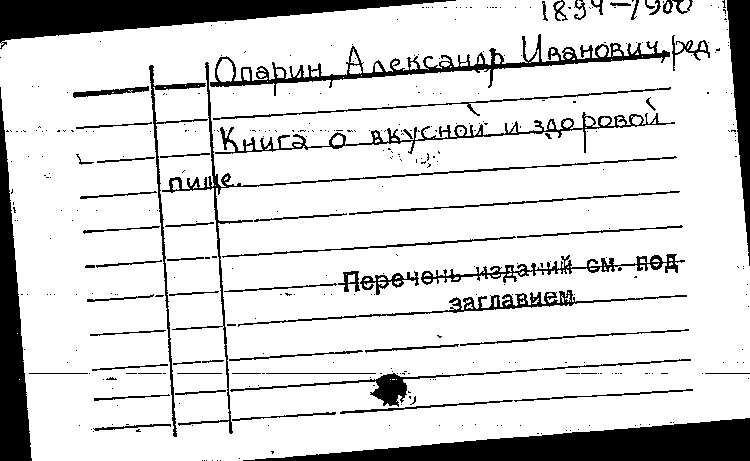 1894-1980
Опарин, Александр Иванович, ред.
Книга о вкусной и здоровой
пище.
Перечень изданий см. под
заглавием